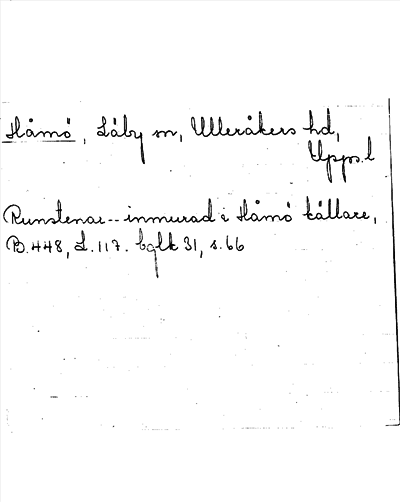 Håmö, Låby sn, Ulleråkers hd,
Upps. l
Runstenar -- inmurad i Håmö källare,
B. 448, L. 117. bqlk 31, s. 66